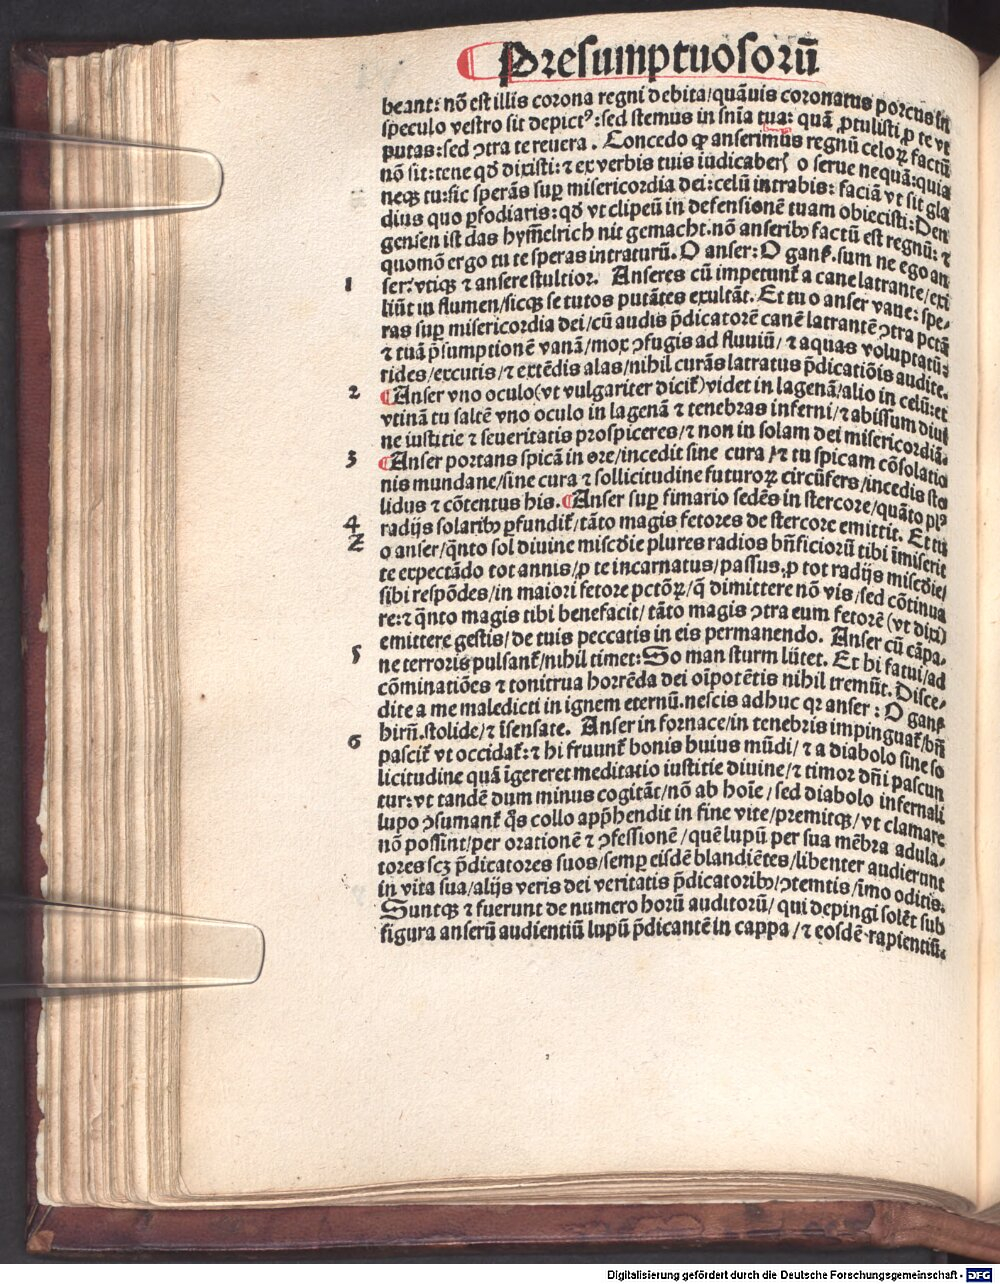 Presumptuosorū
beant: nō est illis corona regni debita/quāuis coronatus porcus in
speculo vestro sit depictꝰ: sed stemus in sn̄ia tua: quā ꝓtulisti ꝓ te vt
putas: sed ↄtra te reuera. Concedo ꝙ anserimus regnū celoꝝ factū
nō sit: tene qd̄ dixisti: ⁊ ex verbis tuis iudicaberꝭ o serue nequā: quia
neqꝫ tu: sic sperās suꝑ misericordia dei: celū intrabis: faciā vt sit gla
dius quo ꝑfodiaris: qd̄ vt clipeū in defensionē tuam obiecisti: Den
gensen ist das hym̄elrich nit gemacht. nō anseribꝰ factū est regnū: ⁊
quomō ergo tu te speras intraturū. O anser: O ganß. sum ne ego an
1 ser? vtiqꝫ ⁊ ansere stultior. Anseres cū impetunt̄ a cane latrante/exi
liūt in flumen/sicqꝫ se tutos putātes exultāt. Et tu o anser vane: spe/
ras suꝑ misericordia dei/cū audis p̄dicatorē canē latrantē ↄtra pctā
⁊ tuā p̄sumptionē vanā/mox ↄfugis ad fluuiū/⁊ aquas voluptatū:
rides/excutis/⁊ extēdis alas/nihil curās latratus p̄dicatiōis audite.
2 Anser vno oculo(vt vulgariter dicit̄)videt in lagenā/alio in celū: et
vtinā tu saltē vno oculo in lagenā ⁊ tenebras inferni/⁊ abissum diui
ne iustitie ⁊ seueritatis prospiceres/⁊ non in solam dei misericordiā.
3 Anser portans spicā in ore/incedit sine cura/⁊ tu spicam cōsolatio
nis mundane/sine cura ⁊ sollicitudine futuroꝝ circūfers/incedis sto
lidus ⁊ cōtentus his. Anser suꝑ fimario sedēs in stercore/quāto plꝰ
4 radijs solaribꝰ ꝑfundit̄/tāto magis fetores de stercore emittit. Et tu
Z o anser/q̄nto sol diuine miscd̄ie plures radios bn̄ficiorū tibi īmiserit
te expectādo tot annis/ꝓ te incarnatus/passus, ꝓ tot radijs miscd̄ie/
sibi respōdes/in maiori fetore pctōꝝ/q̄ dimittere nō vis/sed cōtinua
re: ⁊ q̄nto magis tibi benefacit/tāto magis ↄtra eum fetorē (vt dixi)
emittere gestis/de tuis peccatis in eis permanendo. Anser cū cāpa/
5 ne terroris pulsant̄/nihil timet: So man sturm lütet. Et hi fatui/ad
cōminatiōes ⁊ tonitrua horrēda dei oīpotētis nihil tremūt. Disce/
dite a me maledicti in ignem eternū. nescis adhuc qꝛ anser: O ganß
hirū. stolide/⁊ īsensate. Anser in fornace/in tenebris impinguat̄/bn̄
6 pascit̄ vt occidat̄: ⁊ hi fruunt̄ bonis huius mūdi/⁊ a diabolo sine so
licitudine quā īgereret meditatio iustitie diuine/⁊ timor dn̄i pascun
tur: vt tandē dum minus cogitāt/nō ab hoīe/sed diabolo infernali
lupo ↄsumant̄ q̄s collo app̄hendit in fine vite/premitqꝫ/vt clamare
nō possint/per orationē ⁊ ↄfessionē/quē lupū per sua mēbra adula/
tores scꝫ p̄dicatores suos/semꝑ eisdē blandiētes/libenter audierunt
in vita sua/alijs veris dei veritatis p̄dicatoribꝰ/ↄtemtis/īmo oditis.
Suntqꝫ ⁊ fuerunt de numero horū auditorū/qui depingi solēt sub
figura anserū audientiū lupū p̄dicantē in cappa/⁊ eosdē rapientiū.
Digitalisierung gefördert durch die Deutsche Forschungsgemeinschaft - DFG